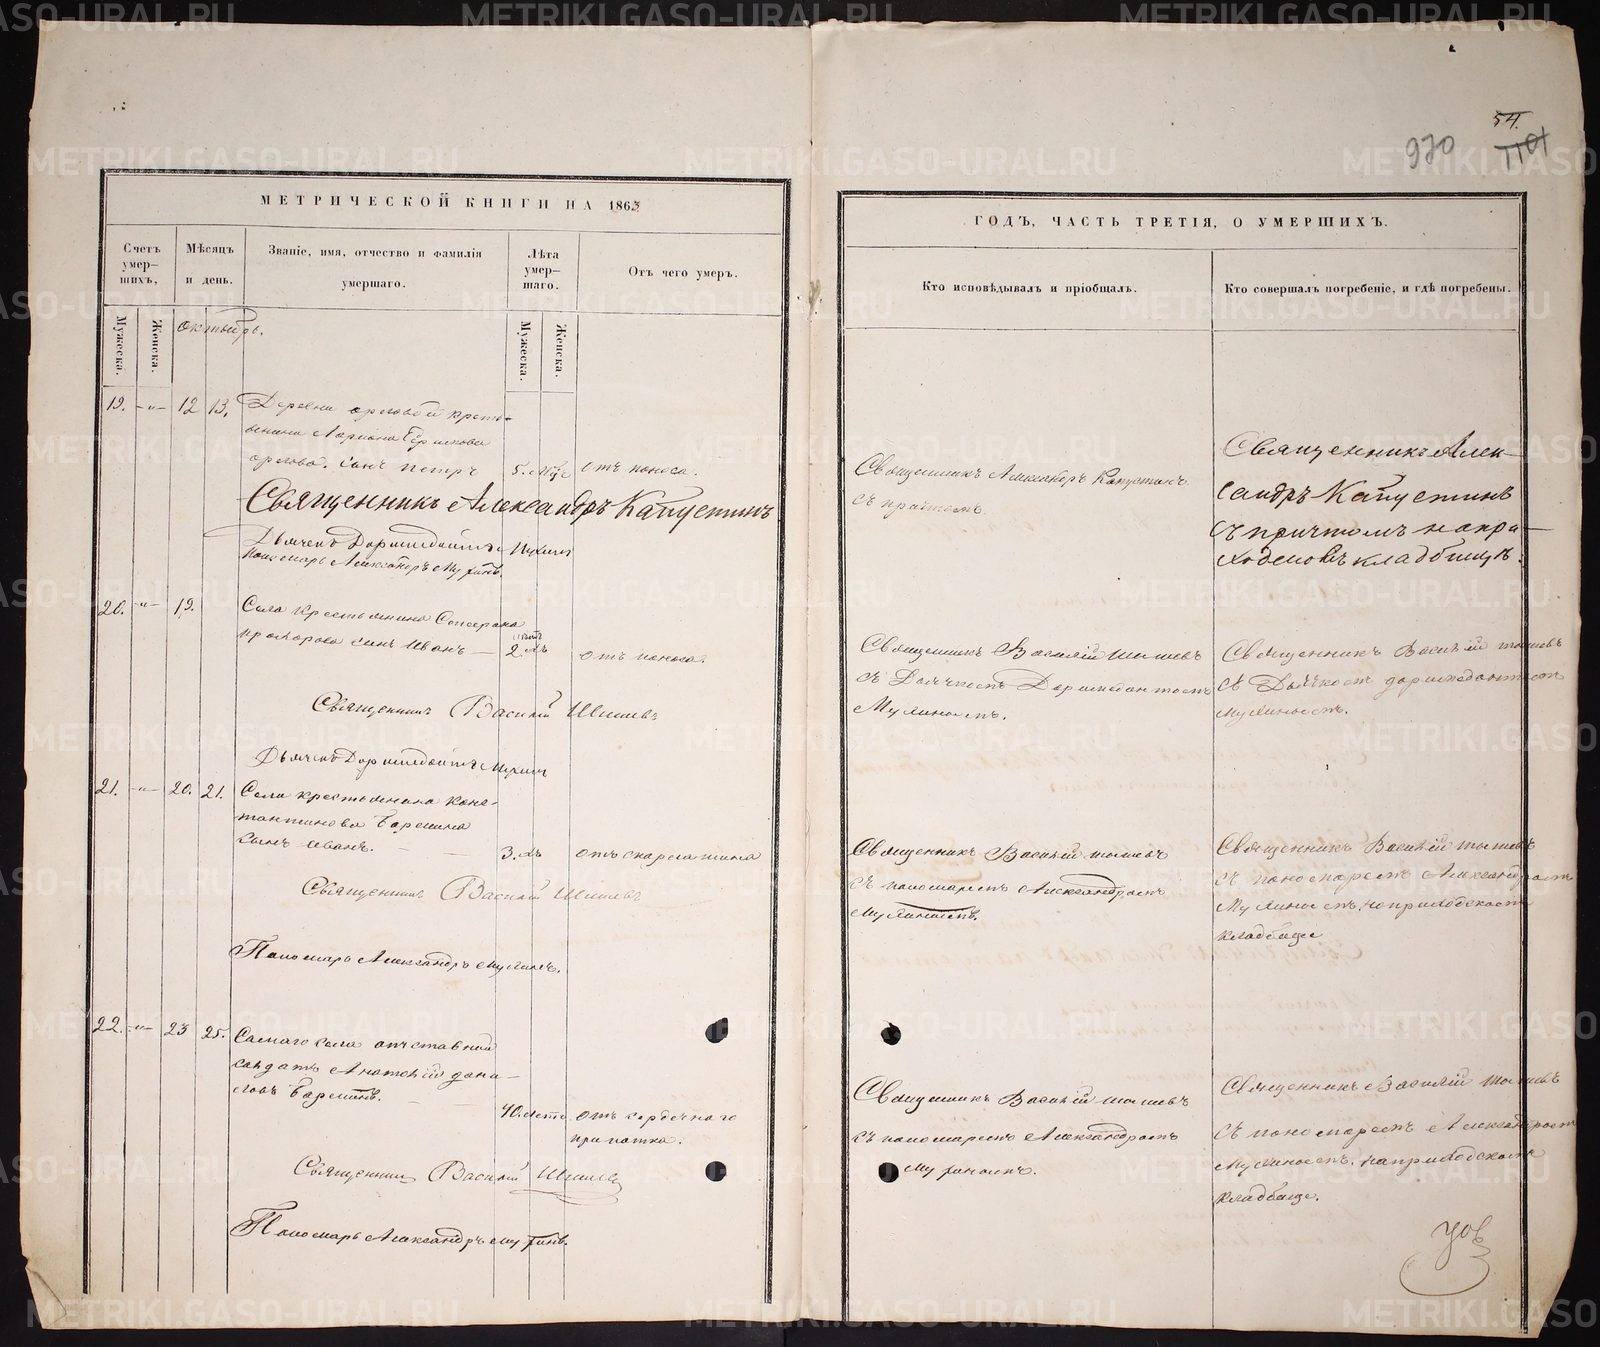 54.
970
1101
МЕТРИЧЕСКОЙ КНИГИ НА 1863
ГОДЪ, ЧАСТЬ ТРЕТІЯ, О УМЕРШИХЪ.
Счетъ умер—шихъ,
Мѣсяцъ и день.
Званіе, имя, отчество и фамилія умершаго.
Лѣта умер—шаго.
Отъ чего умеръ.
Кто исповѣдывалъ и пріобщалъ.
Кто совершалъ погребеніе, и гдѣ погребены.
Мужеска.
Женска.
октябрь.
Мужеска.
Женска.
19. —„— 12 13. Деревни орловой кресть-
янина Лариона
орлова. сынъ петръ 5. отъ поноса.
Священникъ Александръ Капустинъ
Дьячекъ Доримедонтъ Мухинъ
Пономарь Александръ Мухинъ.
Священникъ Александръ Капустинъ
съ причтомъ.
Священникъ Алек—
сандръ Капустинъ
съ причтомъ на при—
ходскомъ кладбищѣ.
20. —„— 19. Села крестьянина
прохорова сынъ Иванъ — 2. отъ поноса.
Священникъ Василій Шишевъ
Дьячекъ Доримедонтъ Мухинъ
Священникъ Василій Шишевъ
съ Дьячкомъ Доримедонтомъ
Мухинымъ.
Священникъ Василій Шишевъ
съ Дьячкомъ доримедонтомъ
Мухинымъ.
21. —„— 20. 21. Села крестьянина Конс-
тантинова
сынъ Иванъ. 3. отъ скарлатина
Священникъ Василій Шишевъ
Пономарь Александръ Мухинъ.
Священникъ Василій Шишевъ
съ пономаремъ Александромъ
Мухинымъ.
Священникъ Василій Шишевъ
съ пономаремъ Александромъ
Мухинымъ, на приходскомъ
кладбище
22. —„— 23 25. Самаго села отставной
солдатъ дани—
ловъ
40. лѣтъ. отъ сердечнаго
припадка.
Священникъ Василій Шишевъ
Пономарь Александръ Мухинъ.
Священникъ Василій Шишевъ
съ пономаремъ Александромъ
Мухинымъ.
Священникъ Василій Шишевъ
съ пономаремъ Александромъ
Мухинымъ. на приходскомъ
кладбище.
METRIKI.GASO-URAL.RU